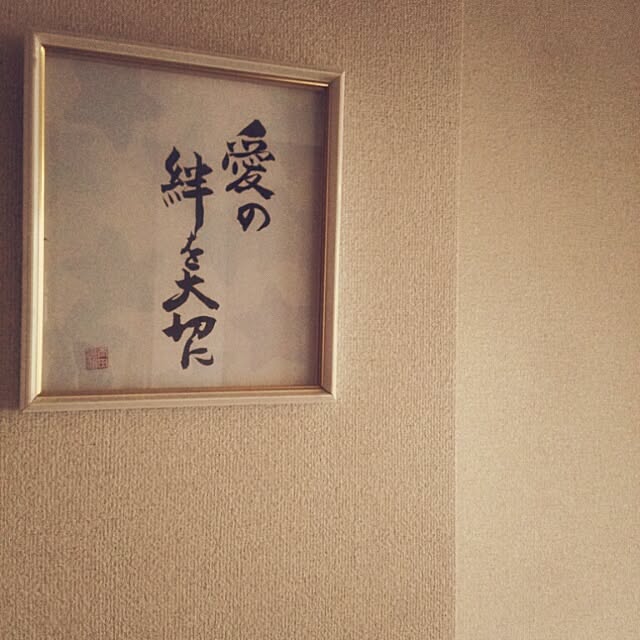 愛の
絆を大切に